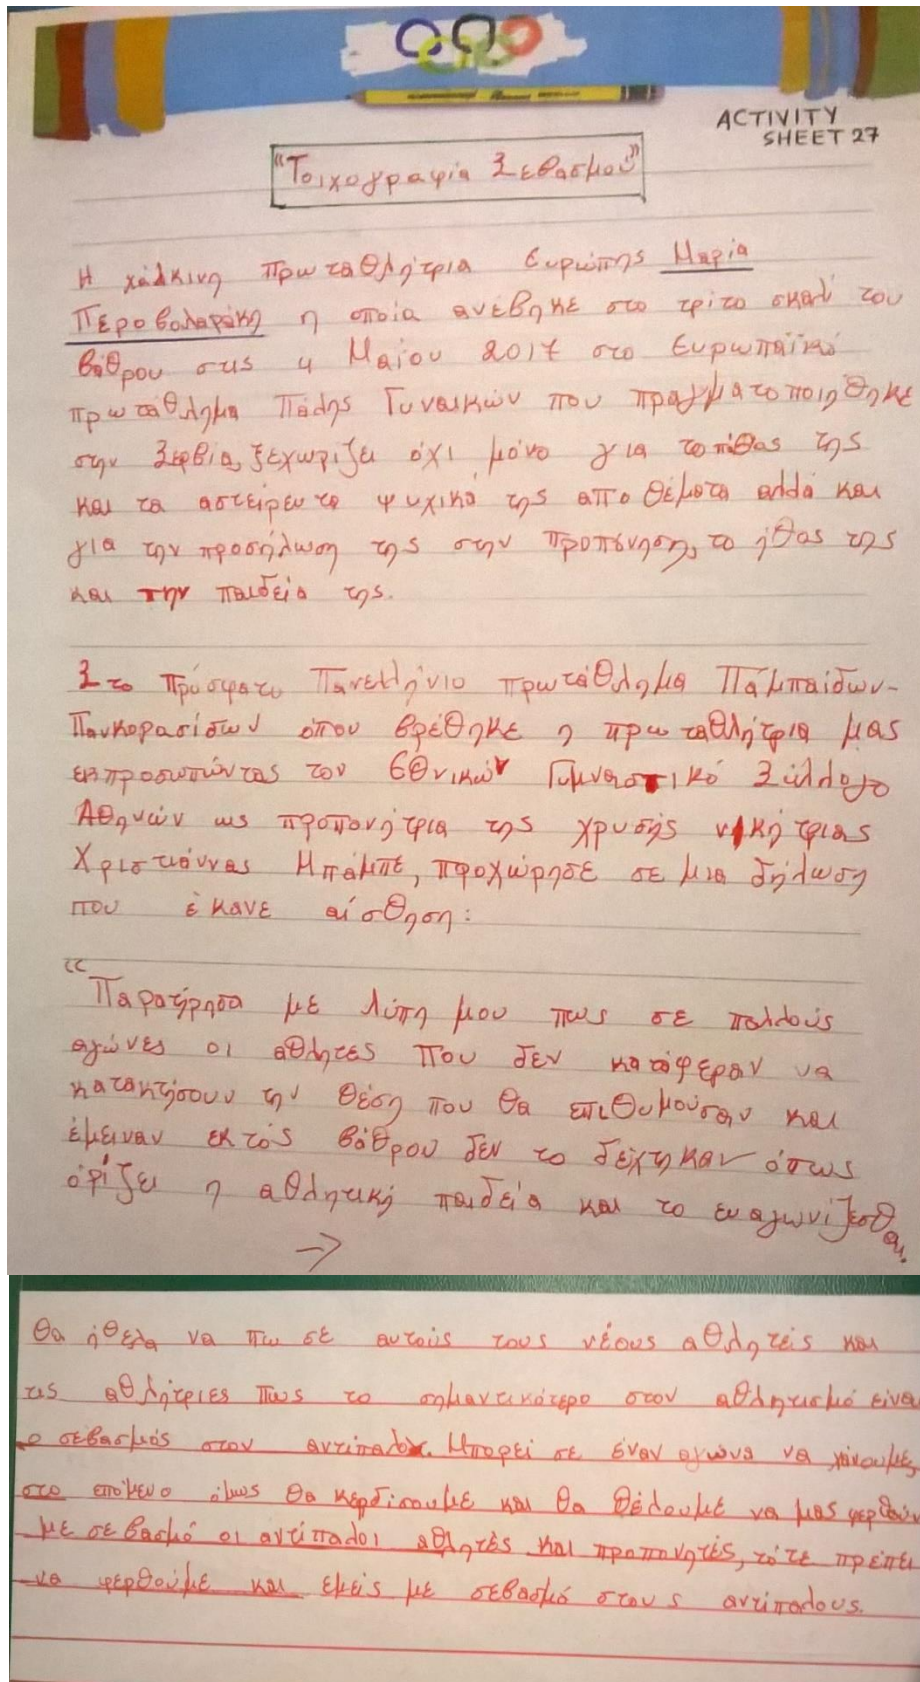 ACTIVITY
SHEET 27
"Τοιχογραφία Σεβασμού"
Η χάλκινη πρωταθλήτρια Ευρώπης Μαρία
Περοβολαράκη η οποία ανέβηκε στο τρίτο σκαλί του
βάθρου στις 4 Μαίου 2017 στο Ευρωπαϊκό
πρωτάθλημα Πάλης Γυναικών που πραγματοποιήθηκε
στην Σερβία, ξεχωρίζει όχι μόνο για το πάθος της
και τα αστείρευτα ψυχικά της αποθέματα αλλά και
για την προσήλωση της στην προπόνηση, το ήθος της
και την παιδεία της.
Στο πρόσφατο Πανελλήνιο πρωτάθλημα Παμπαίδων-
Πανκορασίδων όπου βρέθηκε η πρωταθλήτρια μας
εκπροσωπώντας τον Εθνικών Γυμναστικό Σύλλογο
Αθηνών ως προπονήτρια της χρυσής νικήτριας
Χριστιάννας Μπάμπε, προχώρησε σε μια δήλωση
που έκανε αίσθηση:
"Παρατήρησα με λύπη μου πως σε πολλούς
αγώνες οι αθλητές που δεν κατάφεραν να
κατακτήσουν την θέση που θα επιθυμούσαν και
έμειναν εκτός βάθρου δεν το δέχτηκαν όπως
ορίζει η αθλητική παιδεία και το ευ αγωνίζεσθαι.
→
Θα ήθελα να πω σε αυτούς τους νέους αθλητές και
τις αθλήτριες πως το σημαντικότερο στον αθλητισμό είναι
ο σεβασμός στον αντίπαλο. Μπορεί σε έναν αγώνα να χάνουμε,
στο επόμενο όμως θα κερδίσουμε και θα θέλουμε να μας φερθούν
με σεβασμό οι αντίπαλοι αθλητές και προπονητές, τότε πρέπει
να φερθούμε και εμείς με σεβασμό στους αντίπαλους.